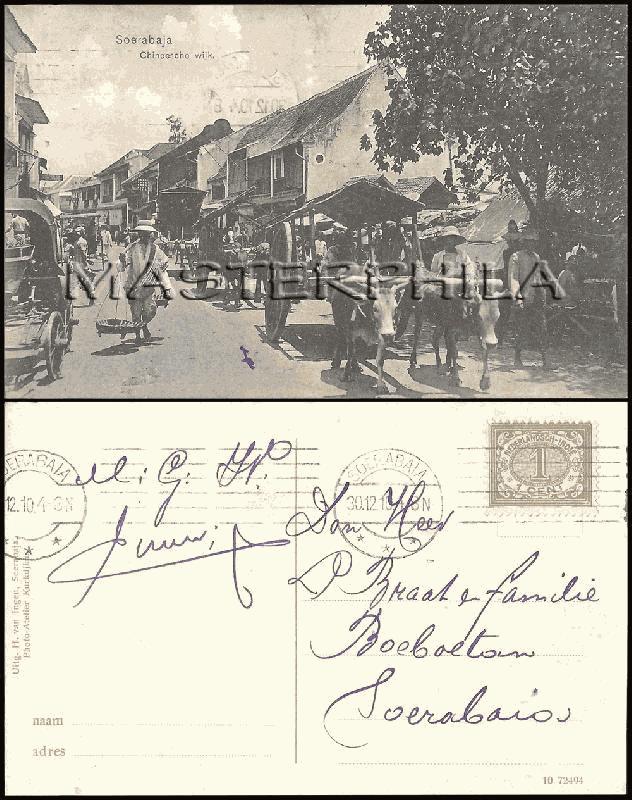 Soerabaja
Chineesche wijk.
30.12.10.4-8
MASTERPHILA
SOERABAIA
12.10.4-8N
M. G. H.
SOERABAIA
30.12.10.4-8N
NEDERLANDSCH-INDIË
1
1 CENT
Den Heer
P Braat en familie
Boeboetan
Soerabaia
Uitg. H. van Ingen, Soerabaja.
Photo-Atelier Kurkdjian
naam
adres
10 72494